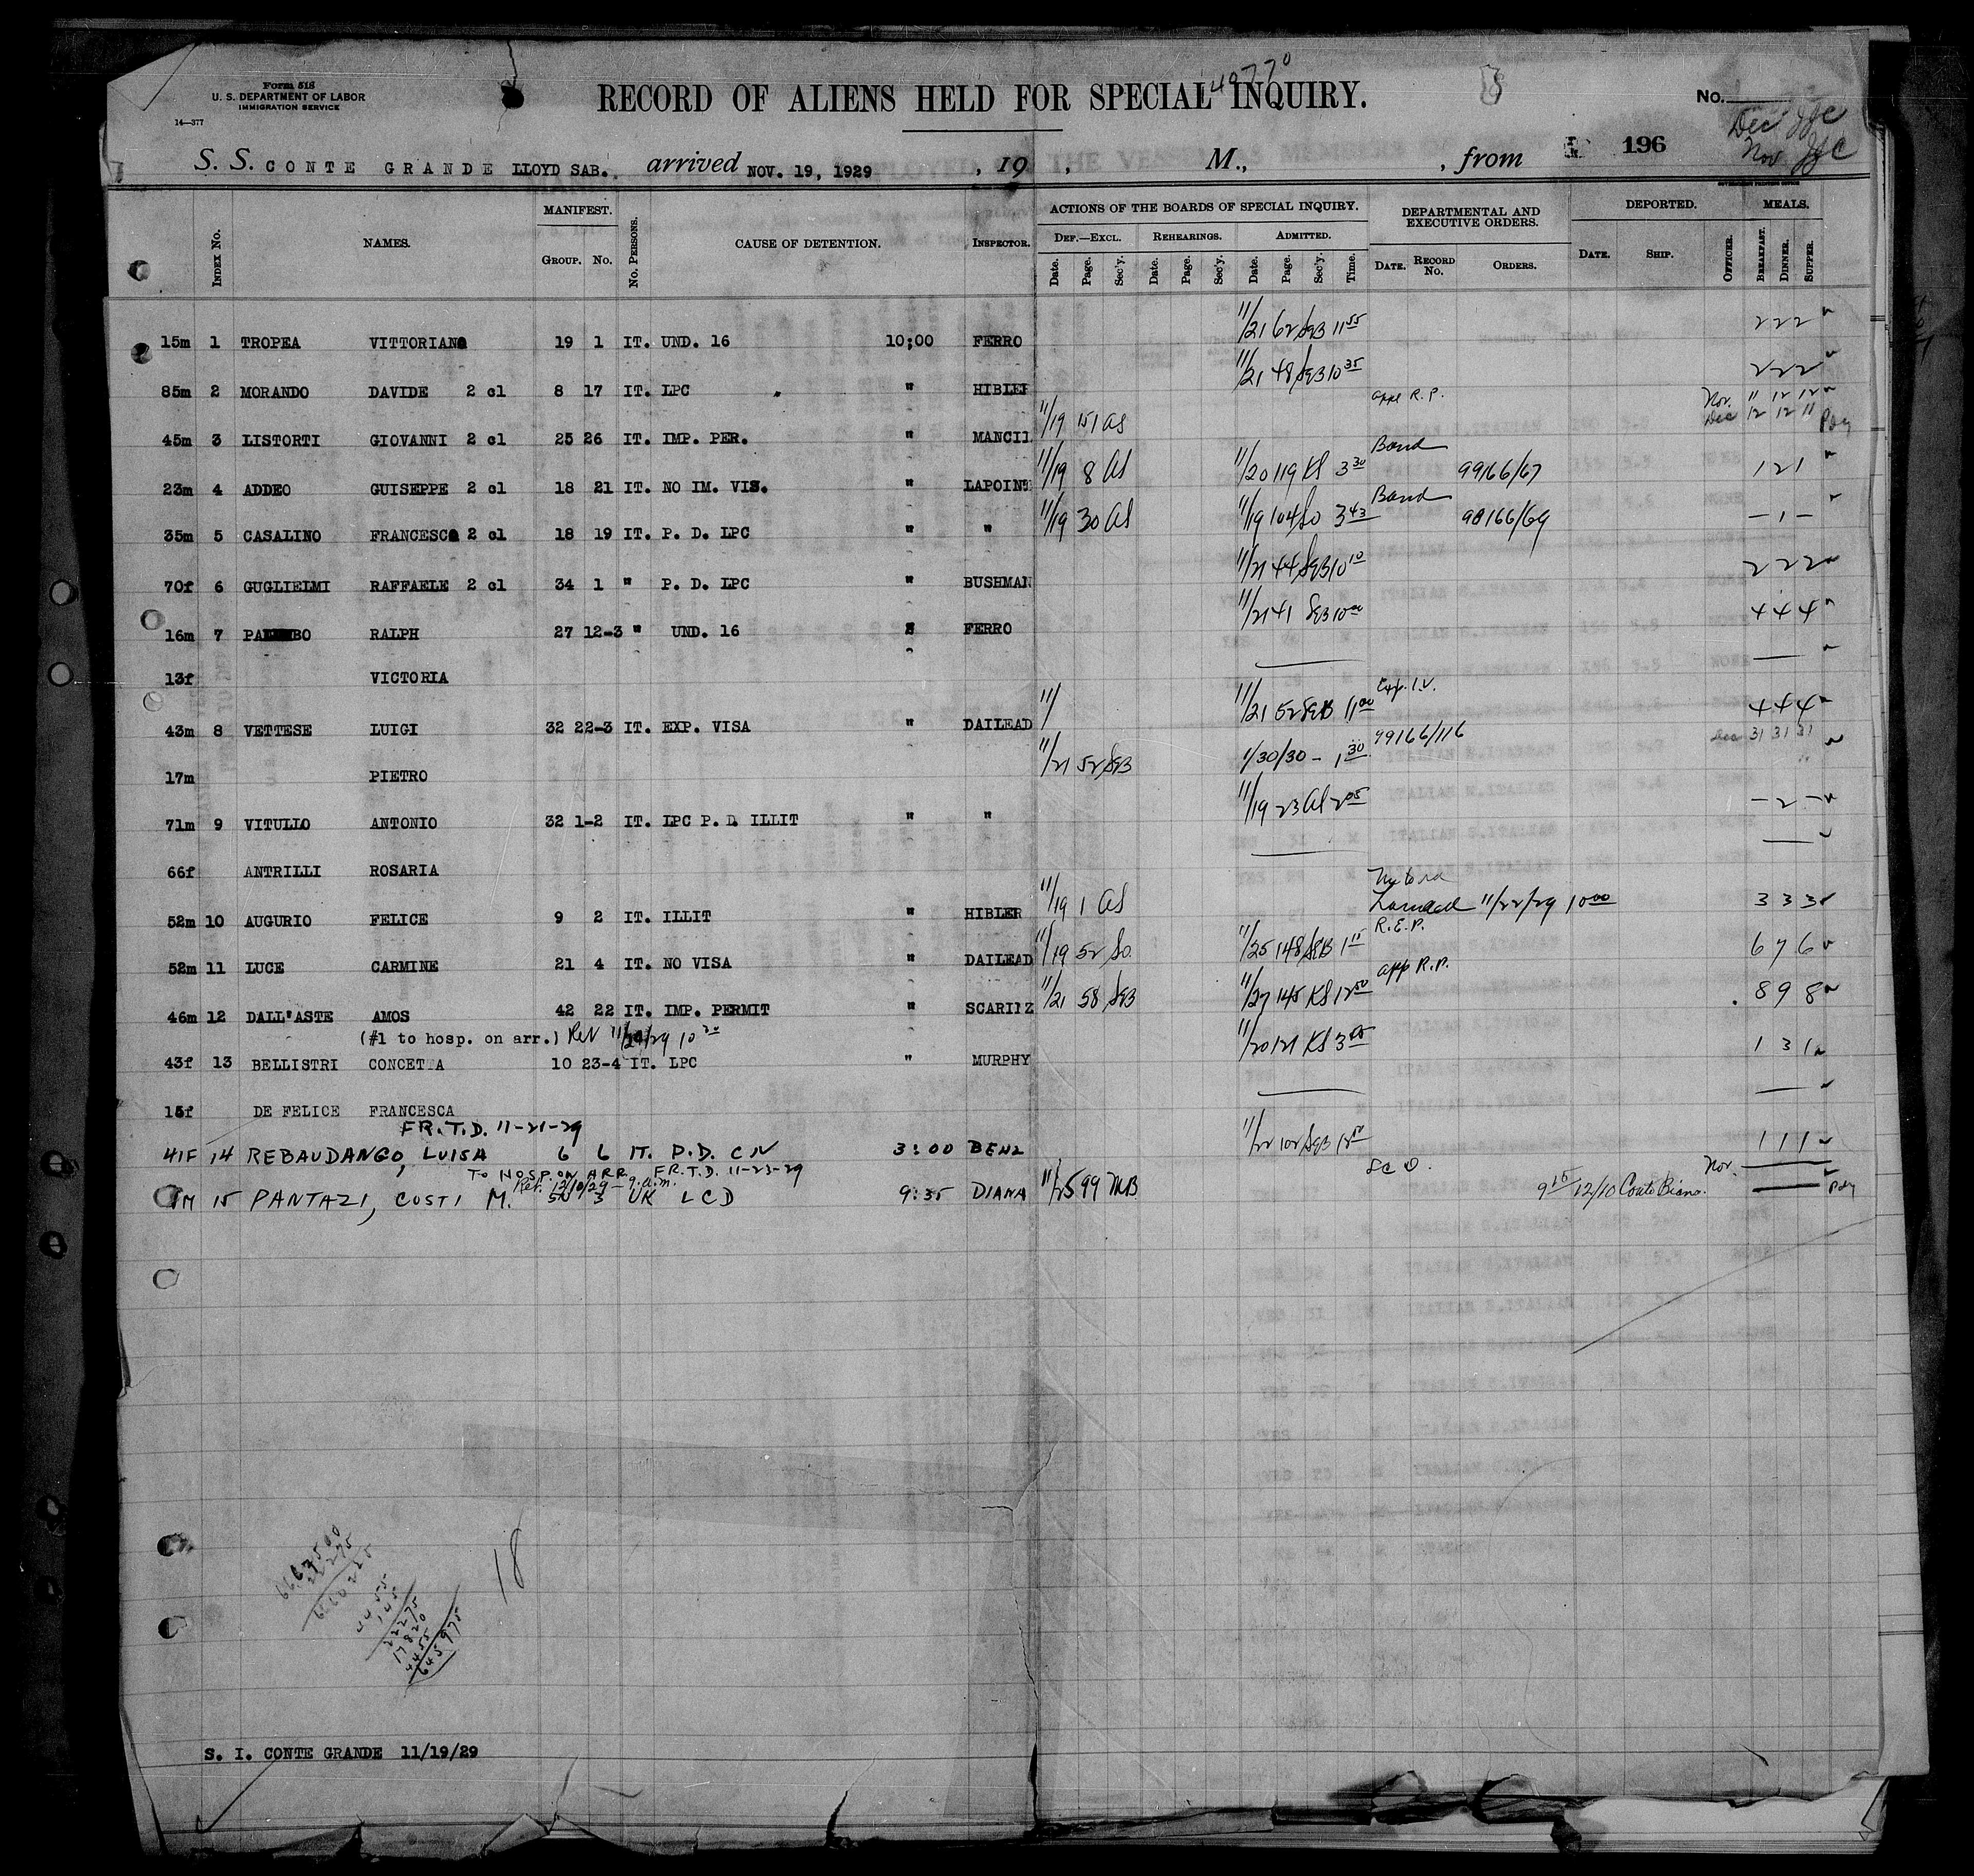 Form 518
U. S. DEPARTMENT OF LABOR
IMMIGRATION SERVICE
14—377
RECORD OF ALIENS HELD FOR SPECIAL INQUIRY.
49770
No.
Dec JJC
Nov JJC
196
S. S. CONTE GRANDE LLOYD SAB. arrived NOV. 19, 1929 , 19 , M., , from
GOVERNMENT PRINTING OFFICE
INDEX No. NAMES. MANIFEST. GROUP. No. No. PERSONS. CAUSE OF DETENTION. INSPECTOR. ACTIONS OF THE BOARDS OF SPECIAL INQUIRY. DEPARTMENTAL AND EXECUTIVE ORDERS. DEPORTED. MEALS.
DEF.—EXCL. REHEARINGS. ADMITTED.
Date. Page. Sec'y. Date. Page. Sec'y. Date. Page. Sec'y. Time. DATE. RECORD No. ORDERS. DATE. SHIP. OFFICER. BREAKFAST. DINNER. SUPPER.
15m 1 TROPEA VITTORIANO 19 1 IT. UND. 16 10;00 FERRO 11/21 62 SEB 11 55 2 2 2
85m 2 MORANDO DAVIDE 2 cl 8 17 IT. LPC " HIBLER 11/21 48 SEB 10 35 2 2 2
45m 3 LISTORTI GIOVANNI 2 cl 25 26 IT. IMP. PER. " MANCII 11/19 151 AS appl R.P. Nov. 11 12 12 Dec 12 12 11
23m 4 ADDEO GUISEPPE 2 cl 18 21 IT. NO IM. VIS. " LAPOINTE 11/19 8 AS 11/20 119 KS 3 30 Bond 99166/67 1 2 1
35m 5 CASALINO FRANCESCO 2 cl 18 19 IT. P. D. LPC " " 11/19 30 AS 11/19 104 So 3 43 Bond 99166/69 — 1 —
70f 6 GUGLIELMI RAFFAELE 2 cl 34 1 " P. D. LPC " BUSHMAN 11/21 44 SEB 10 10 2 2 2
16m 7 RALPH 27 12-3 " UND. 16 " FERRO 11/21 41 SEB 10 00 4 4 4
13f VICTORIA
43m 8 VETTESE LUIGI 32 22-3 IT. EXP. VISA " DAILEAD 11/ 11/21 52 SEB 11 00 Exp. I.V. 4 4 4
17m PIETRO 11/21 52 SEB 1/30/30 — 1 30 99166/116 Dec 31 31 31
71m 9 VITULLO ANTONIO 32 1-2 IT. LPC P. D. ILLIT " " 11/19 23 AS 2 05 — 2 —
66f ANTRILLI ROSARIA
52m 10 AUGURIO FELICE 9 2 IT. ILLIT " HIBLER 11/19 1 AS 11/22/29 10 00 3 3 3
52m 11 LUCE CARMINE 21 4 IT. NO VISA " DAILEAD 11/19 52 So. 11/25 148 SEB 1 15 R.E.P. 6 7 6
46m 12 DALL'ASTE AMOS 42 22 IT. IMP. PERMIT " SCARITZ 11/21 58 SEB 11/27 145 KS 12 50 app R.P. 8 9 8
(#1 to hosp. on arr.) Rel 11/20/29 10 20
43f 13 BELLISTRI CONCETTA 10 23-4 IT. LPC " MURPHY 11/20 121 KS 3 05 1 3 1
15f DE FELICE FRANCESCA
FR. T. D. 11-21-29
41F 14 REBAUDANGO, LUISA 6 6 IT. P.D. CN 3:00 BENZ 11/22 102 SEB 12 50 1 1 1
TO HOSP. ON ARR. FR. T. D. 11-23-29
Rel. 12/10/29 — 9 a.m.
M 15 PANTAZI, COSTI M. 50 3 UK LCD 9:35 DIANA 11/25 99 MB. 9 15 12/10 Conte Bianc. Nov.
18
4455
145
22275
17820
4455
645975
S. I. CONTE GRANDE 11/19/29